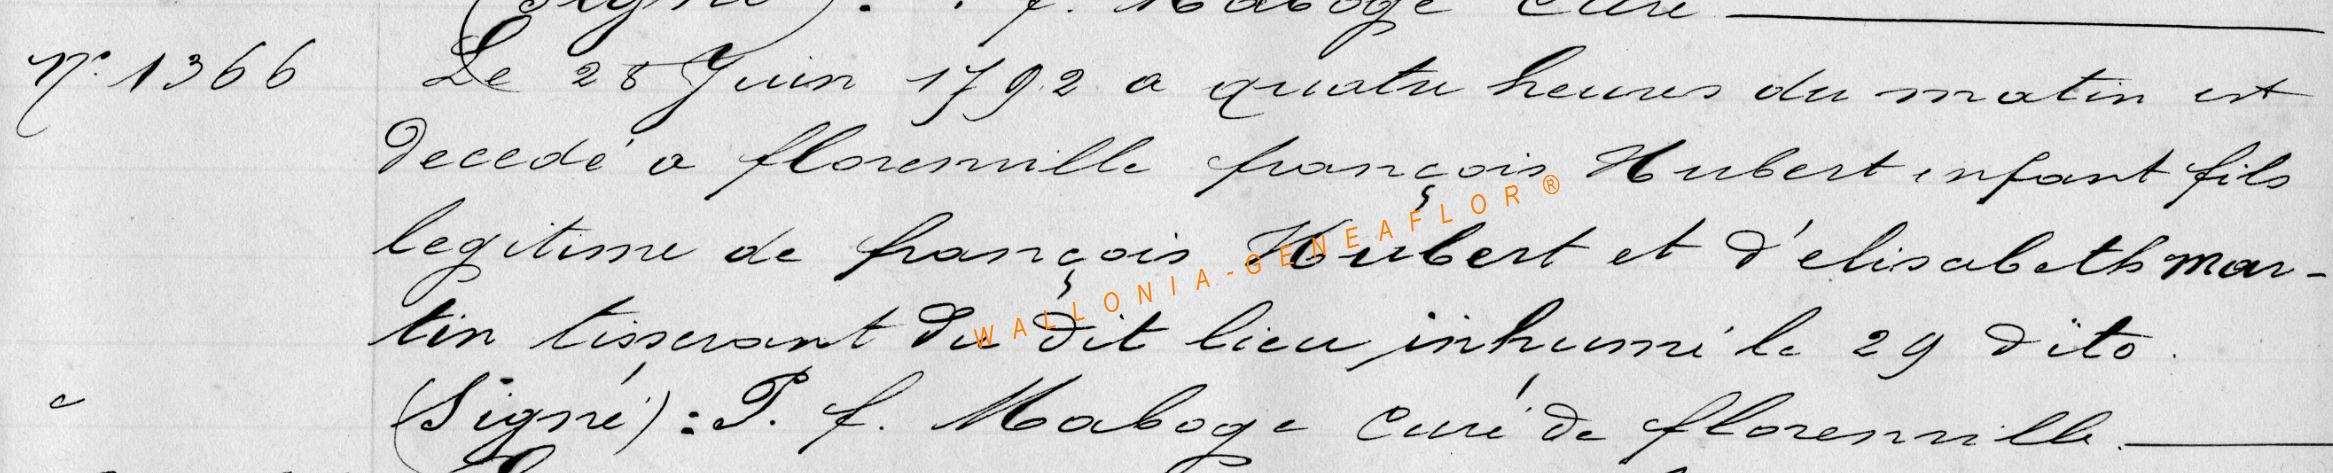 (Signé). . f. Maboge Curé
N° 1366 Le 28 Juin 1792 a quatre heures du matin est
decedé a florenville françois Hubert enfant fils
legitime de françois Hubert et d'elisabeth mar-
tin tisserant du dit lieu inhumé le 29 dito.
(Signé): P. f. Maboge Curé de florenville.
WALLONIA-GENEAFLOR®